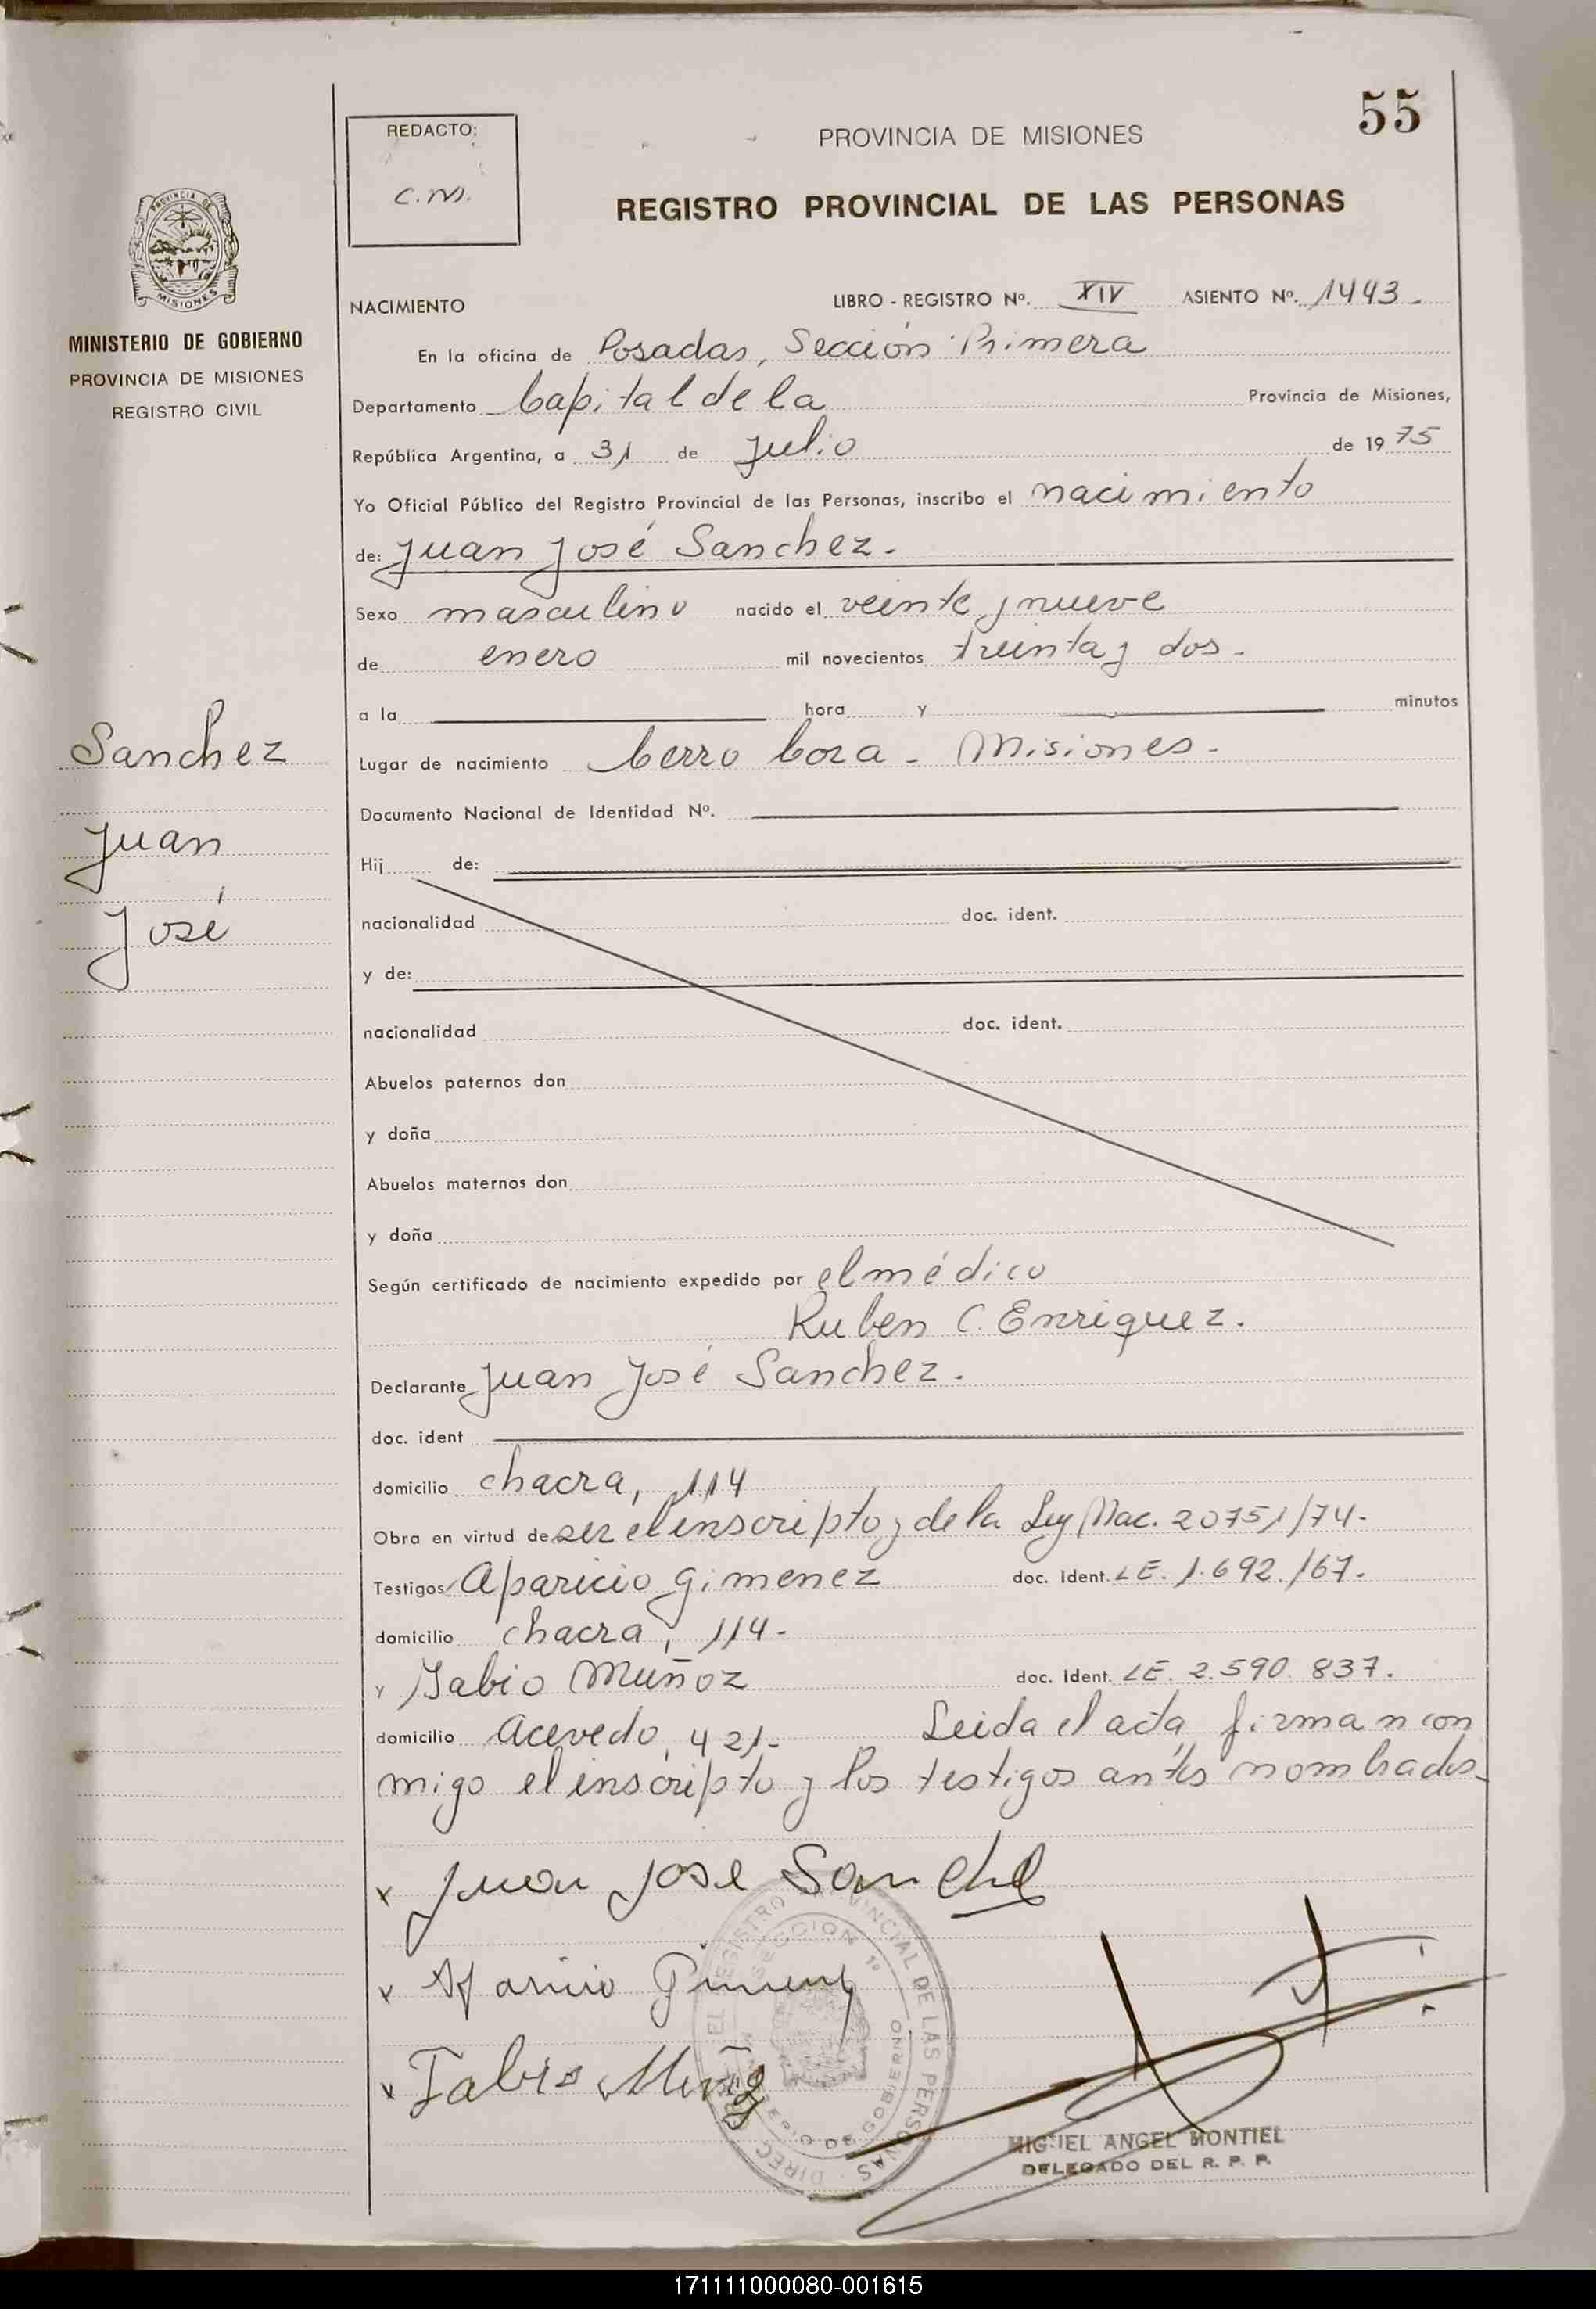 55
REDACTO:
C.M.
PROVINCIA DE MISIONES
REGISTRO PROVINCIAL DE LAS PERSONAS
PROVINCIA DE
MISIONES
MINISTERIO DE GOBIERNO
PROVINCIA DE MISIONES
REGISTRO CIVIL
NACIMIENTO LIBRO - REGISTRO Nº. XIV ASIENTO Nº. 1443.
En la oficina de Posadas, Sección Primera
Departamento Capital de la Provincia de Misiones,
República Argentina, a 31 de Julio de 1975
Yo Oficial Público del Registro Provincial de las Personas, inscribo el nacimiento
de: Juan José Sanchez.
Sexo masculino nacido el veinte y nueve
de enero mil novecientos treinta y dos.
a la hora y minutos
Sanchez
Juan
José
Lugar de nacimiento Cerro Cora - Misiones.
Documento Nacional de Identidad Nº.
Hij de:
nacionalidad doc. ident.
y de:
nacionalidad doc. ident.
Abuelos paternos don
y doña
Abuelos maternos don
y doña
Según certificado de nacimiento expedido por el médico
Ruben C. Enriquez.
Declarante Juan José Sanchez.
doc. ident
domicilio chacra, 114
Obra en virtud de ser el inscripto y de la Ley Nac. 20751/74.
Testigos Aparicio Gimenez doc. Ident. LE. 1.692.167.
domicilio chacra, 114-
y Fabio Muñoz doc. Ident. LE. 2.590.837.
domicilio Acevedo, 421- Leida el acta, firman con
migo el inscripto y los testigos antes nombrados.
x Juan Jose Sanchez
x Aparicio Gimenez
x Fabio Muñoz
REGISTRO PROVINCIAL DE LAS PERSONAS
SECCION 1º
MINISTERIO DE GOBIERNO
MIGUEL ANGEL MONTIEL
DELEGADO DEL R. P. P.
171111000080-001615